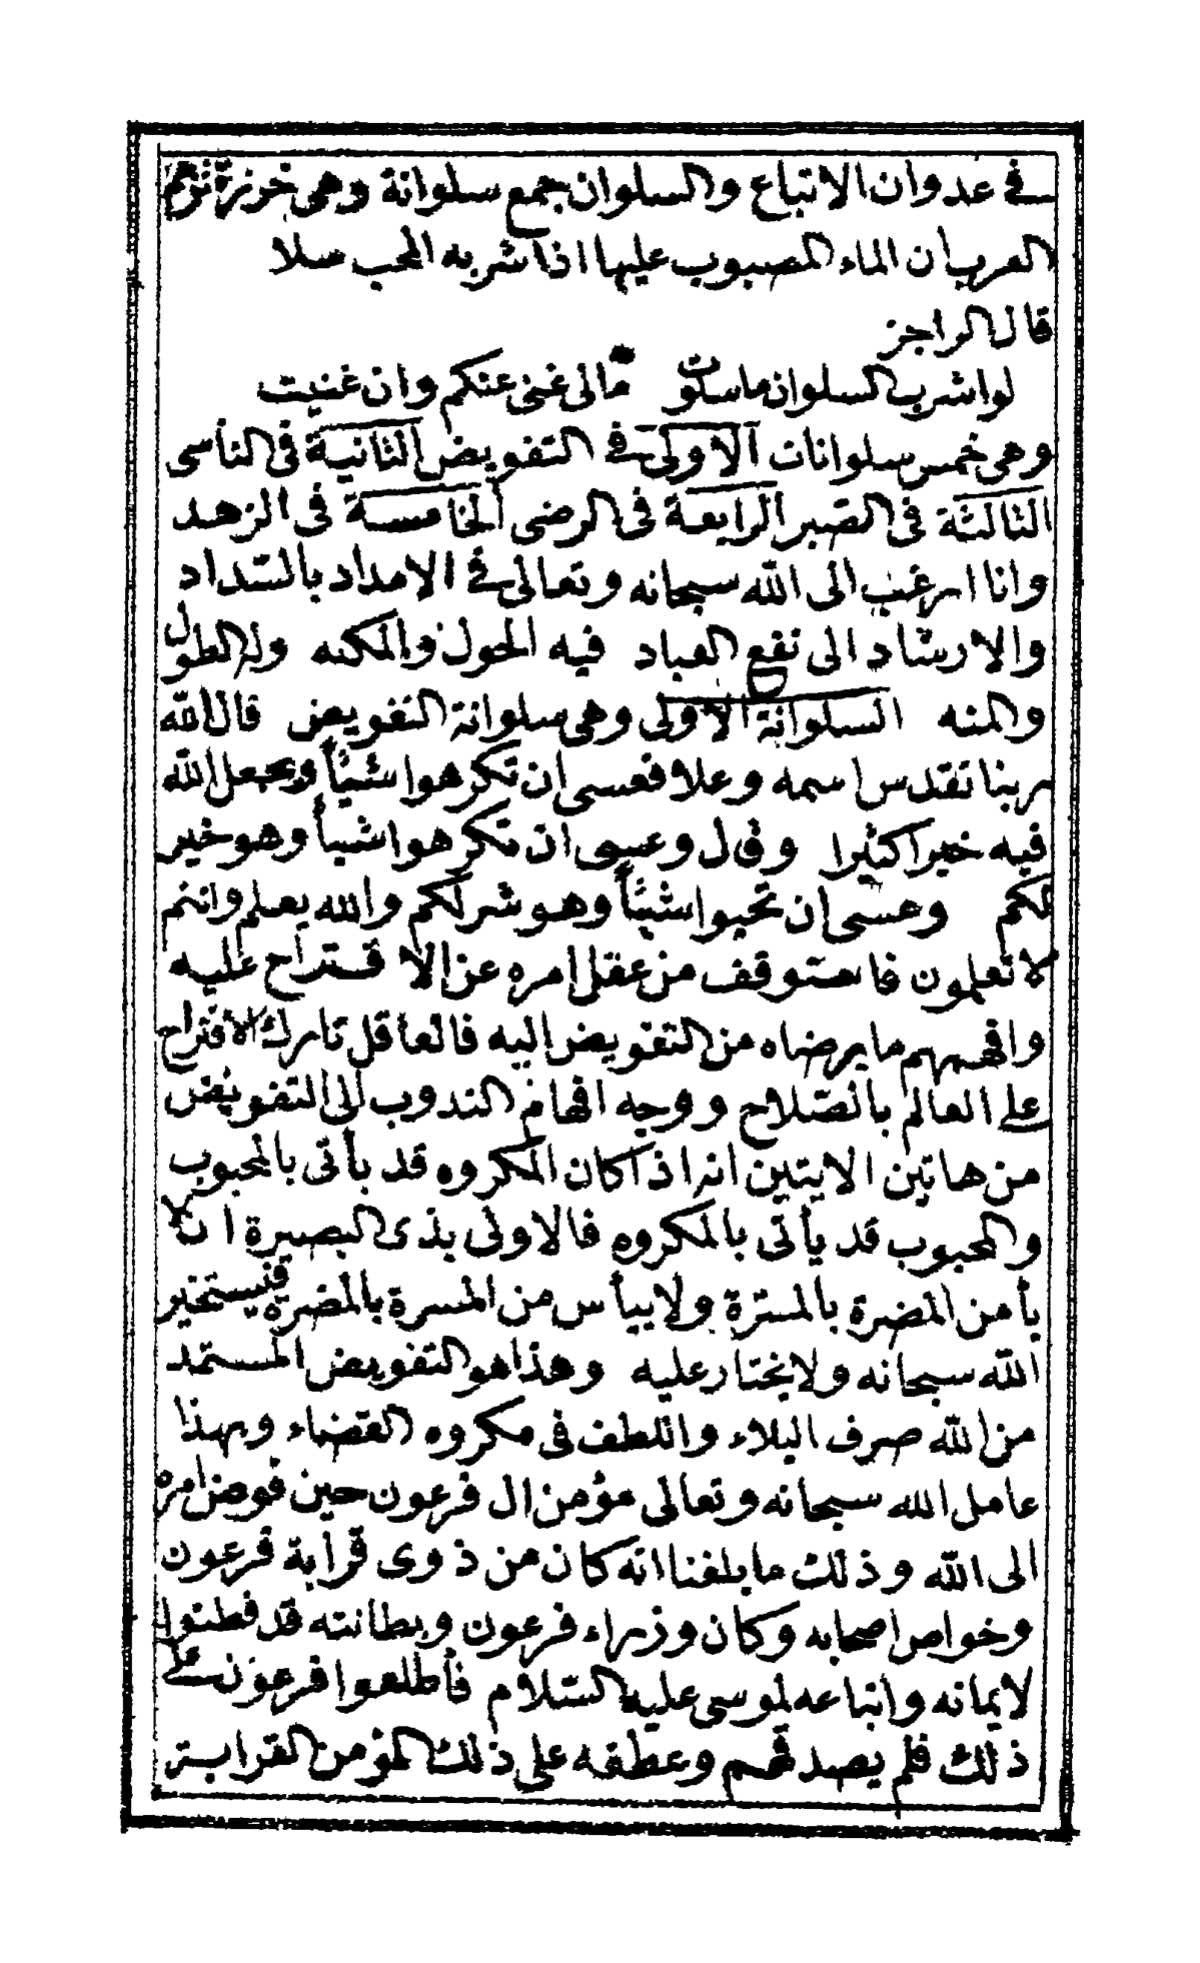 في عدوان الاتباع والسلوان جمع سلوانة وهى خرزة تزعم
العرب ان الماء المصبوب عليها اذا شربه المحب سلا
قال الراجز
لو اشرب السلوان ما سلوت مالى غنى عنكم وان غنيت
وهى خمس سلوانات الاولى في التفويض الثانية فى التأسى
الثالثة فى الصبر الرابعة فى الرضى الخامسة فى الزهد
وانا ارغب الى الله سبحانه وتعالى في الامداد بالسداد
والارشاد الى نفع العباد فيه الحول والمكنه وله الطول
والمنه السلوانة الاولى وهى سلوانة التفويض قال الله
ربنا تقدس اسمه وعلا فعسى ان تكرهوا شيئاً ويجعل الله
فيه خيرا كثيرا وقال وعسى ان تكرهوا شيأ وهو خير
لكم وعسى ان تحبوا شيئاً وهو شر لكم والله يعلم وانتم
لا تعلمون فاستوقف من عقل امره عن الاقتراح عليه
وافهمهم ما يرضاه من التفويض اليه فالعاقل تارك الاقتراح
على العالم بالصلاح ووجه افهام الندوب الى التفويض
من هاتين الايتين انه اذا كان المكروه قد يأتى بالمحبوب
والمحبوب قد يأتى بالمكروه فالاولى بذى البصيرة ان لا
يأمن المضرة بالمسرّة ولا ييأس من المسرة بالمضرة فيستخير
الله سبحانه ولا يختار عليه وهذا هو التفويض المستمد
من الله صرف البلاء واللطف فى مكروه القضاء وبهذا
عامل الله سبحانه وتعالى مؤمن ال فرعون حين فوض امره
الى الله وذلك ما بلغنا انه كان من ذوى قرابة فرعون
وخواص اصحابه وكان وزراء فرعون وبطانته قد فطنوا
لايمانه واتباعه لموسى عليه السلام فأطلعوا فرعون على
ذلك فلم يصدقهم وعطفه على ذلك المؤمن القرابة